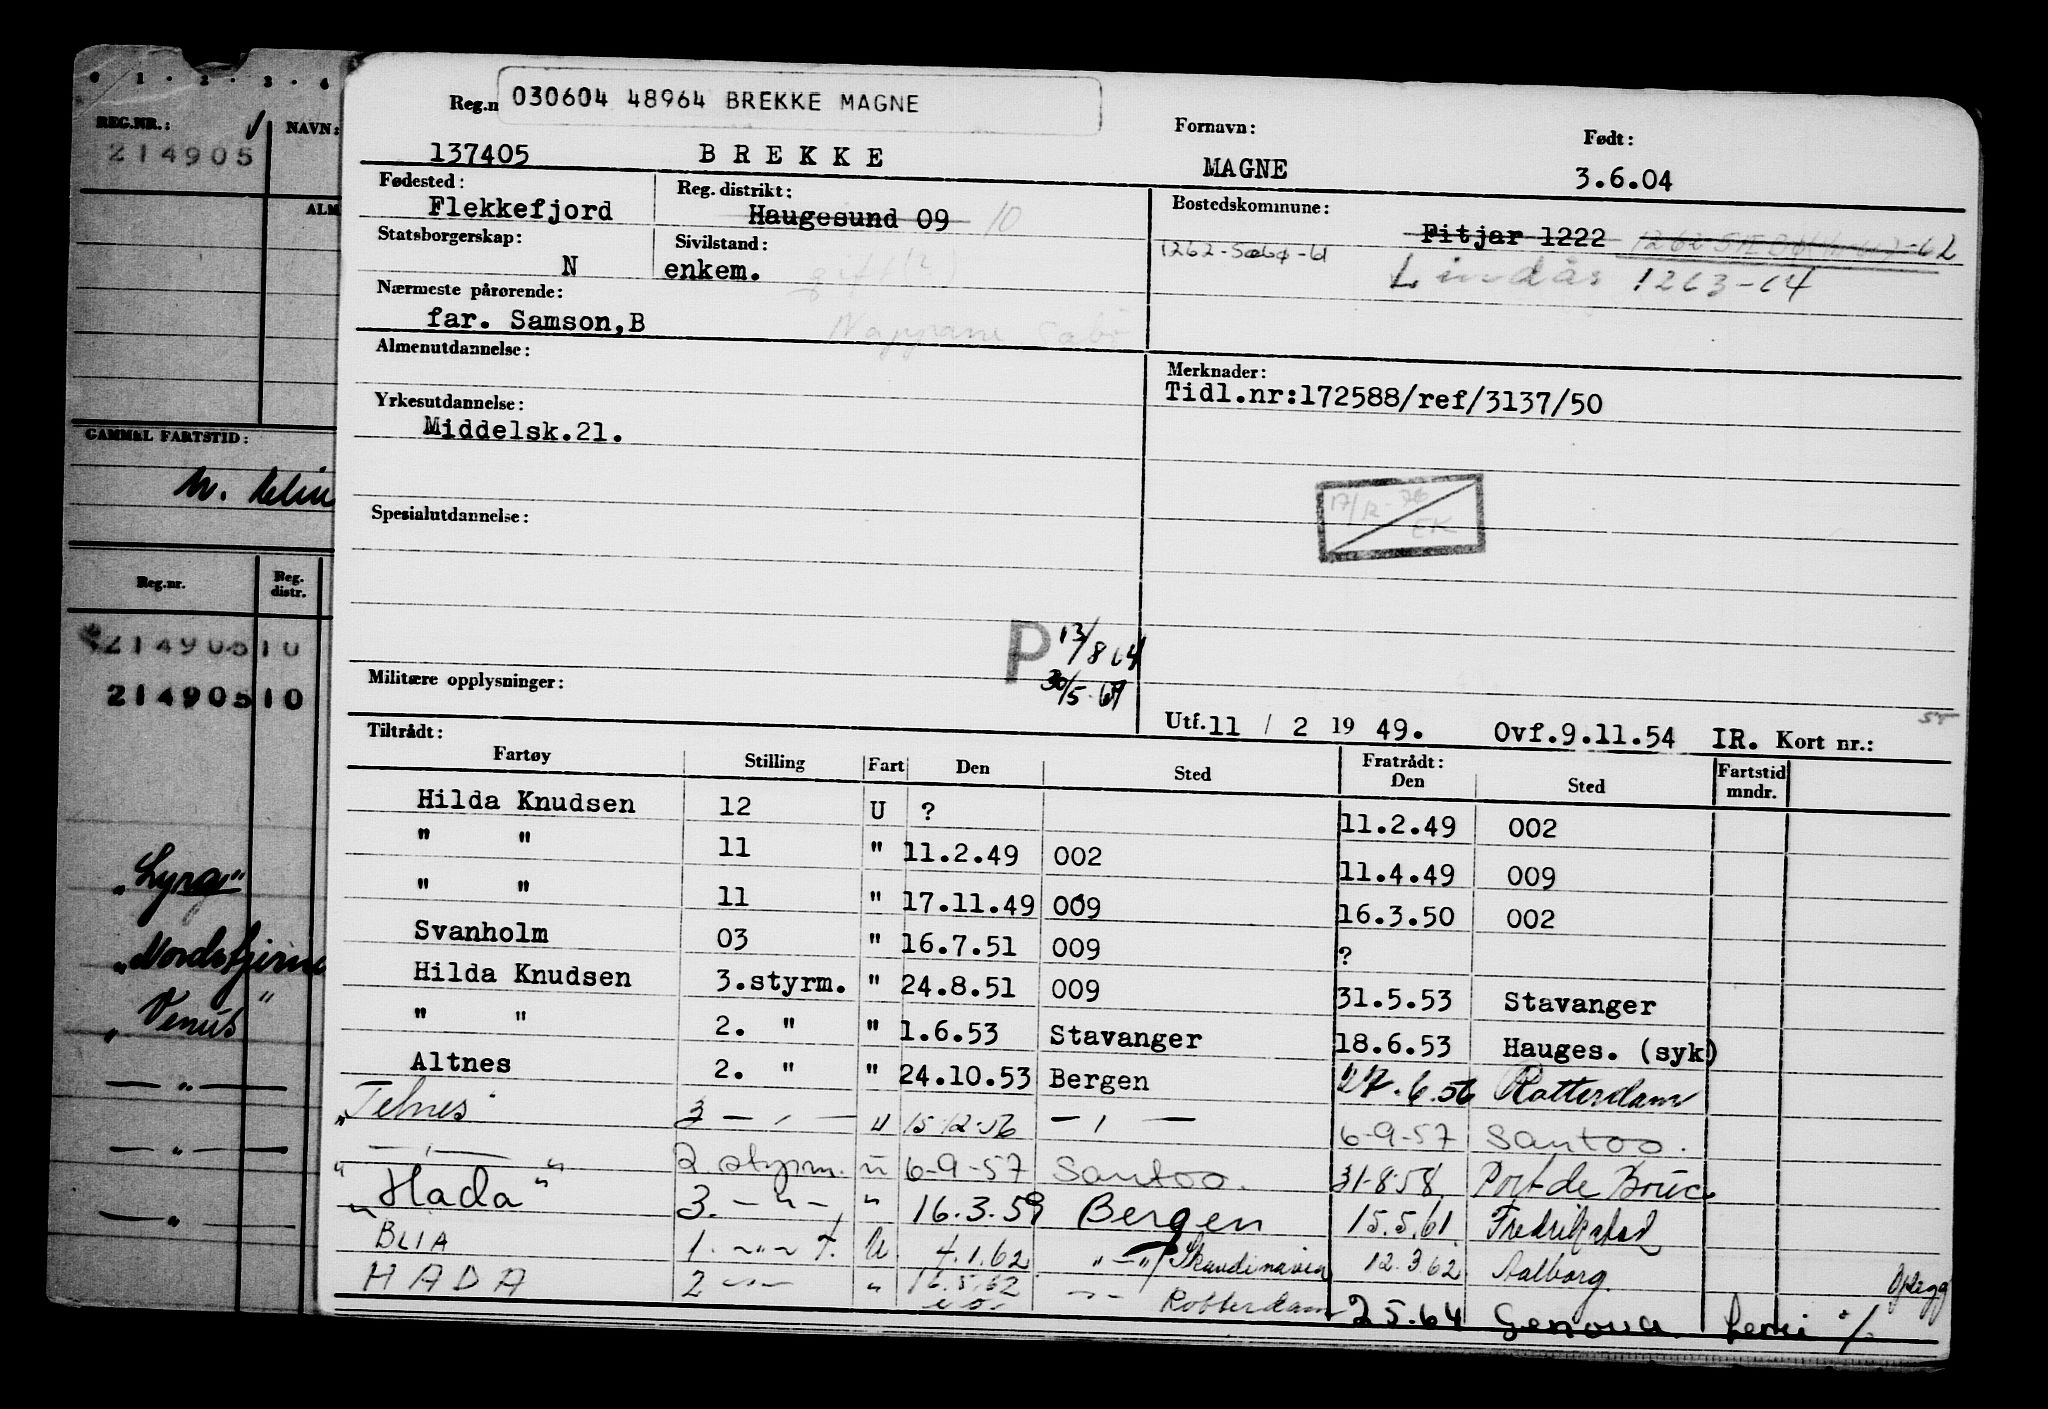 0 1 · 2 · 3 · 4
REG.NR.: NAVN:
214905
ALM
GAMMEL FARTSTID:
Reg.nr. Reg. distr.
214905 10
214905 10
"Lyra"
"Nordstjerne
"Venus"
— " —
— " —
— " —
030604 48964 BREKKE MAGNE
Reg.n Fornavn: Født:
137405 BREKKE MAGNE 3.6.04
Fødested: Reg. distrikt: Bostedskommune:
Flekkefjord Haugesund 09 10 Fitjar 1222
Statsborgerskap: Sivilstand:
N enkem. Lindås 1263-64
Nærmeste pårørende:
far. Samson,B
Almenutdannelse: Merknader:
Tidl.nr:172588/ref/3137/50
Yrkesutdannelse:
Middelsk.21.
17/12-76 EK
Spesialutdannelse:
P 13/8 64
30/5-67
Militære opplysninger:
Utf.11 / 2 19 49. Ovf.9.11.54 IR. Kort nr.:
Tiltrådt: Fratrådt:
Fartøy Stilling Fart Den Sted Den Sted Fartstid mndr.
Hilda Knudsen 12 U ? 11.2.49 002
" " 11 " 11.2.49 002 11.4.49 009
" " 11 " 17.11.49 009 16.3.50 002
Svanholm 03 " 16.7.51 009 ?
Hilda Knudsen 3.styrm. " 24.8.51 009 31.5.53 Stavanger
" " 2. " " 1.6.53 Stavanger 18.6.53 Hauges. (syk)
Altnes 2. " " 24.10.53 Bergen 27.6.56 Rotterdam
"Telnes 3 — " — u 15-12-56 — " — 6-9-57 Santos.
" — " — " 2 styrm. u 6-9-57 Santos. 31-8-58 Port de Bouc
"Hada" 3. — " — " 16.3.59 Bergen 15.5.61 Fredrikstad
BLIA 1. — " — U 4.1.62 — " — / Skandinavia 12.3.62 Aalborg.
HADA 2 — " — " 16.5.62 — " — Rotterdam 25.64 Genova ferie Opplegg